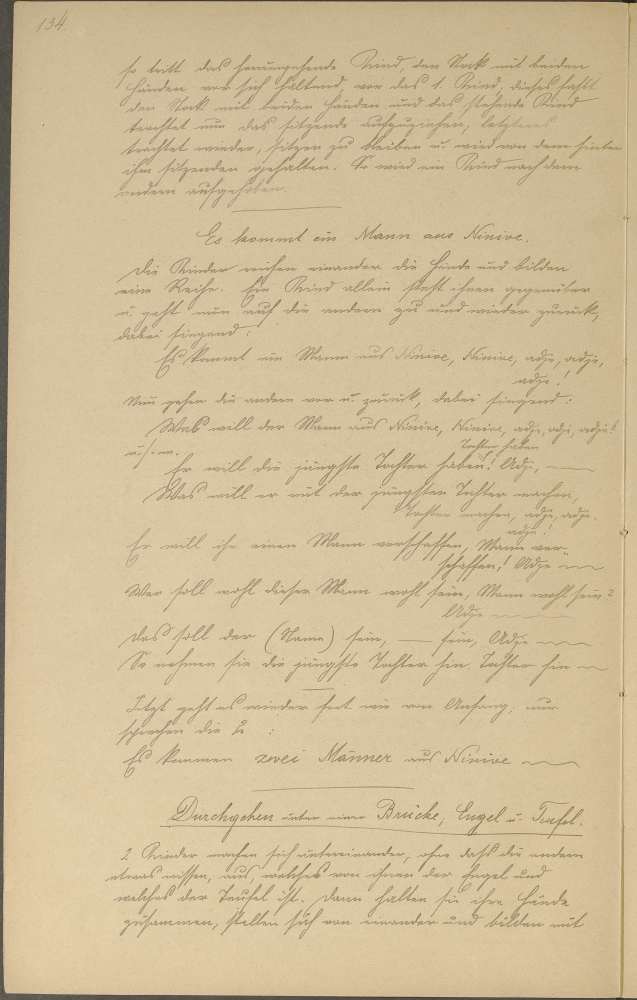 134
so tritt das herumgehende Kind, den Stock mit beiden
Händen vor sich haltend, vor das 1. Kind, dieses faßt
den Stock mit beiden Händen und das stehende Kind
trachtet nun das sitzende aufzuziehen, letzteres
trachtet wieder, sitzen zu bleiben u. wird von dem hinter
ihm sitzenden gehalten. So wird ein Kind nach dem
andern aufgehoben.
Es kommt ein Mann aus Ninive.
Die Kinder reichen einander die Hände und bilden
eine Reihe. Ein Kind allein steht ihnen gegenüber
u. geht nun auf die andern zu und wieder zurück,
dabei singend:
Es kommt ein Mann aus Ninive, Ninive, adje, adje,
adje!
Nun gehen die andern vor u. zurück, dabei singend:
Was will der Mann aus Ninive, Ninive, adje, adje, adje?
u.s.w.
Tochter haben
Er will die jüngste Tochter haben! Adje, —
Was will er mit der jüngsten Tochter machen,
Tochter machen, adje, adje.
adje!
Er will ihr einen Mann verschaffen, Mann ver-
schaffen! Adje
Wer soll wohl dieser Mann wohl sein, Mann wohl sein?
Adje
Das soll der (Name) sein, — sein, Adje
So nehmen sie die jüngste Tochter hin, Tochter hin
Jetzt geht es wieder fort wie von Anfang; nur
sprechen die 2 :
Es kommen zwei Männer aus Ninive
Durchgehen unter einer Brücke, Engel u. Teufel.
2 Kinder machen sich untereinander, ohne daß die andern
etwas wissen, aus, welches von ihnen der Engel und
welches der Teufel ist. Dann halten sie ihre Hände
zusammen, stellen sich von einander und bilden mit